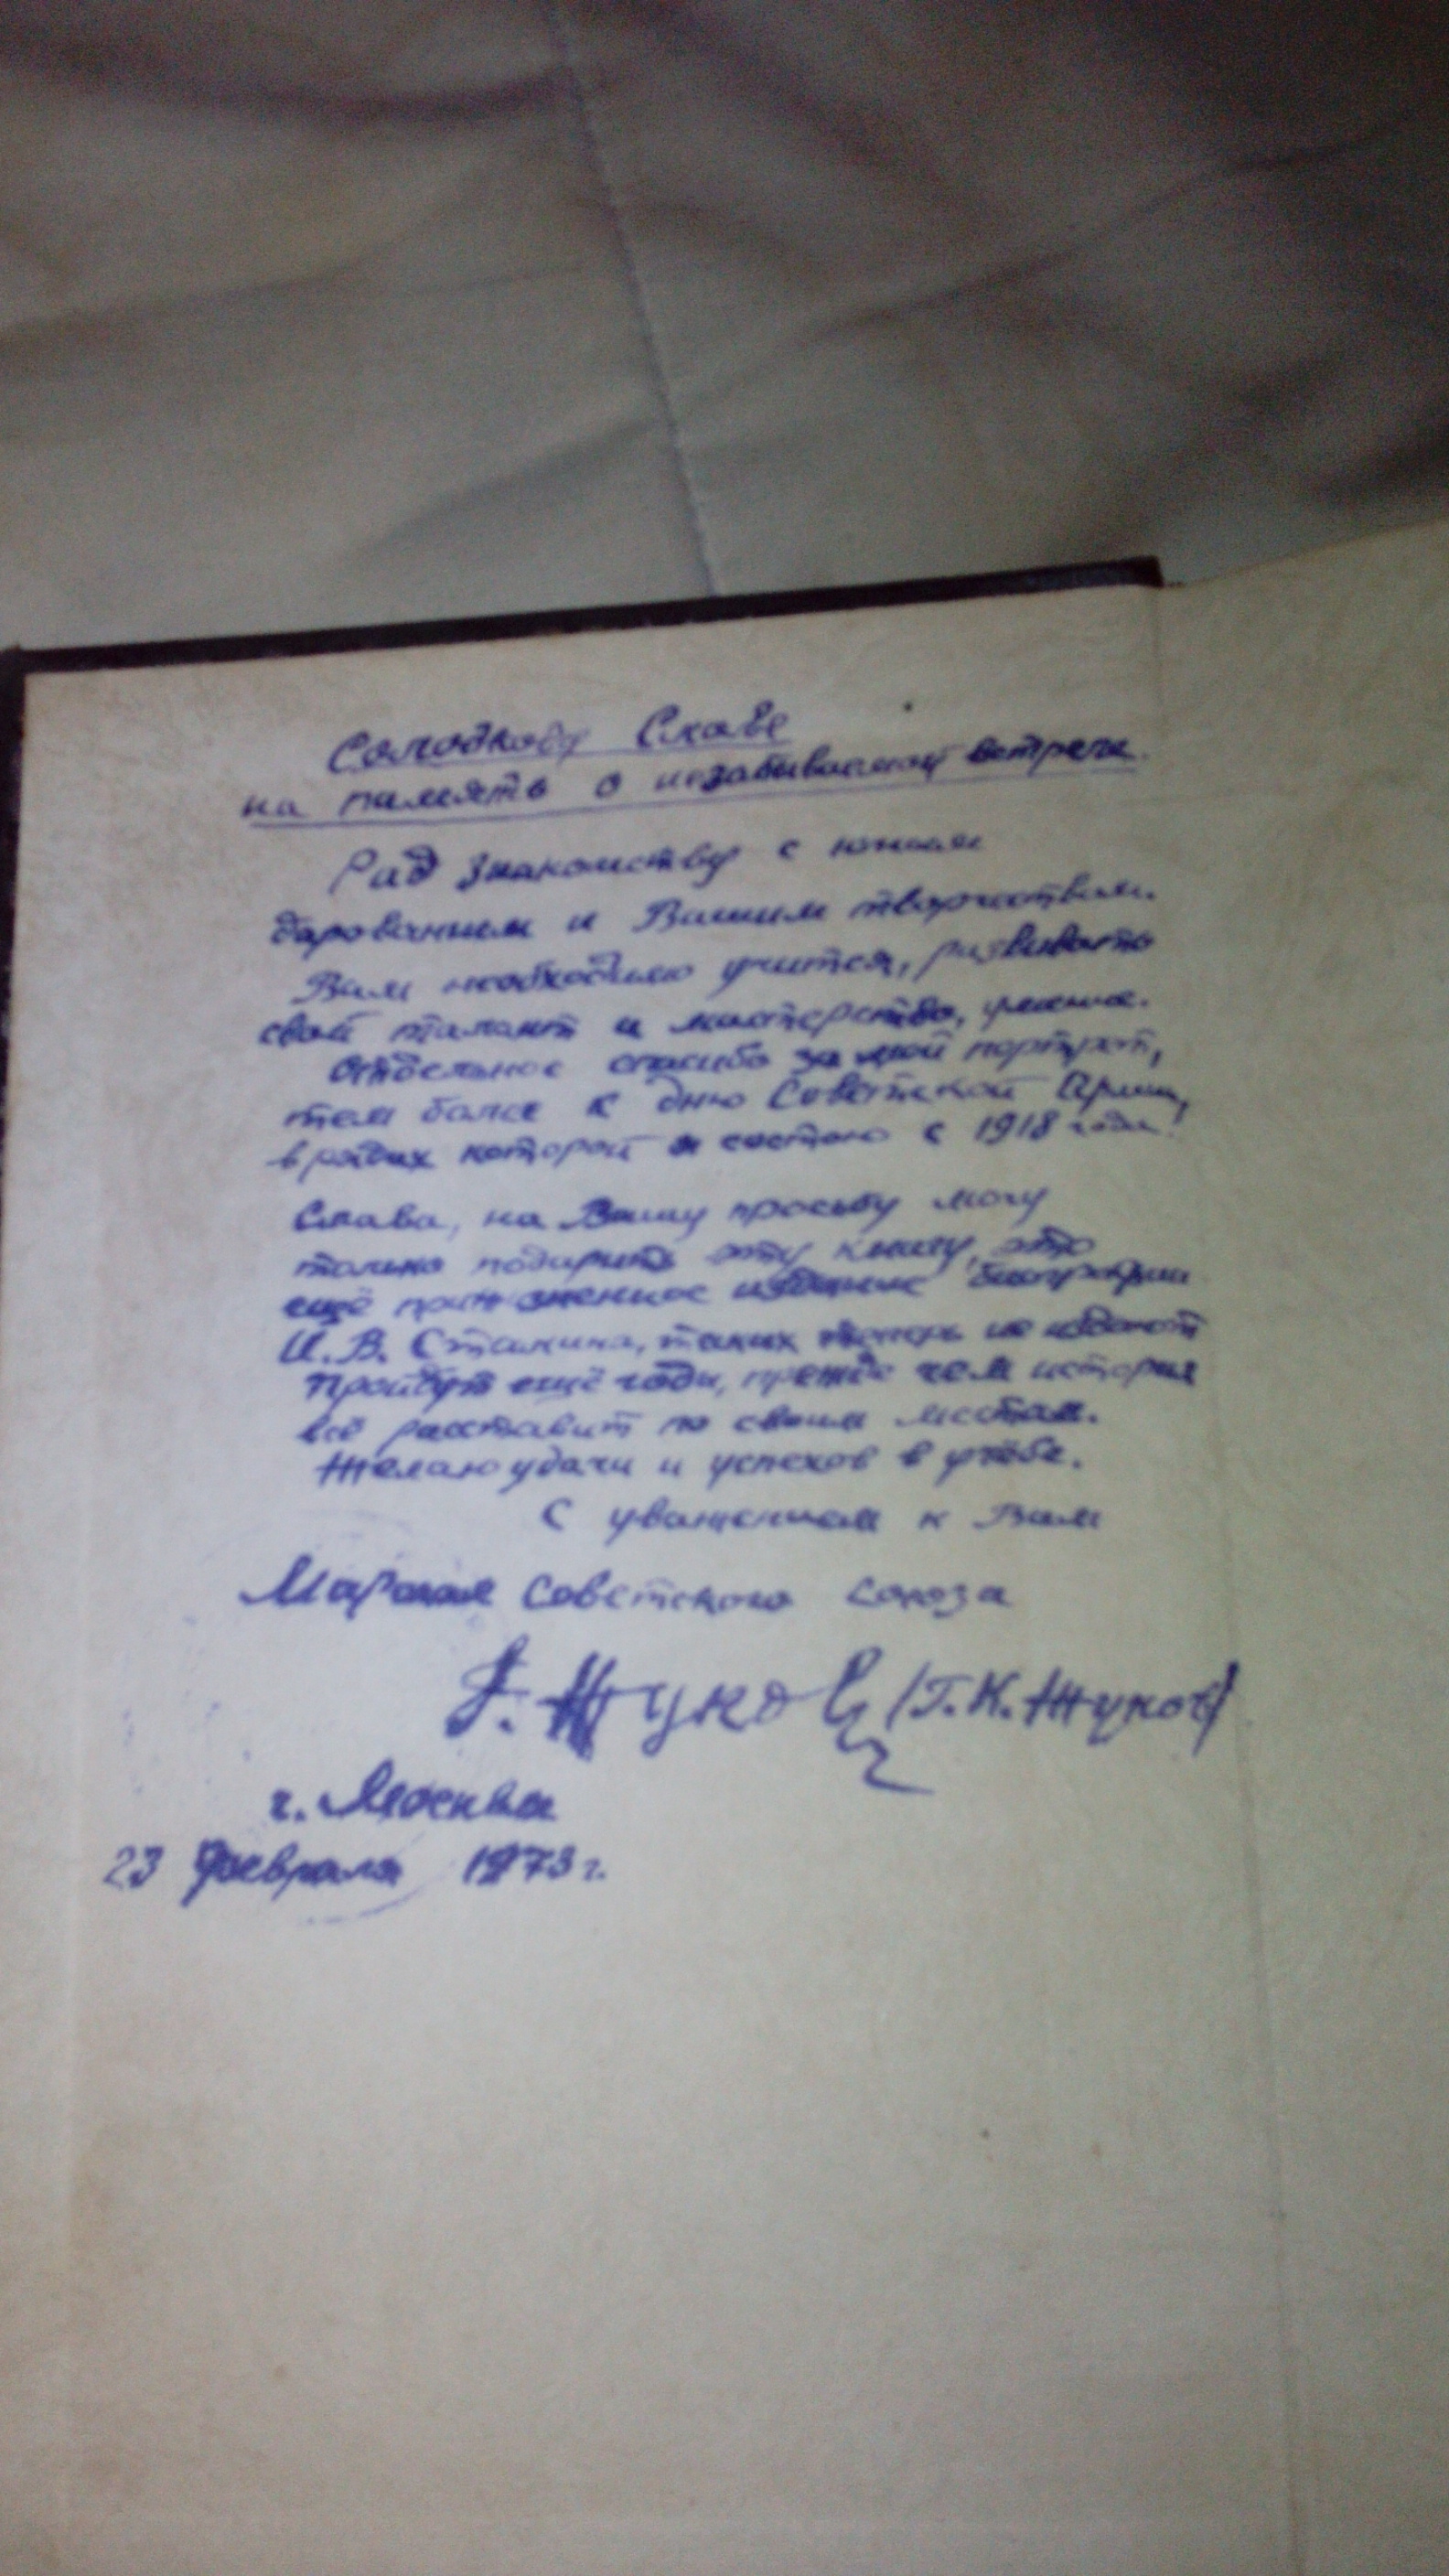 Солодкову Славе
на память о незабываемой встрече.
Рад знакомству с юным
дарованием и Вашим творчеством.
Вам необходимо учится, развивать
свой талант и мастерство, умение.
Отдельное спасибо за мой портрет,
тем более к дню Советской Армии,
в рядах которой я состою с 1918 года.
Слава, на Вашу просьбу могу
только подарить эту книгу, это
ещё издание биографии
И. В. Сталина, таких теперь не издают
Пройдут ещё годы, прежде чем история
всё расставит по своим местам.
Желаю удачи и успехов в учёбе.
С уважением к Вам
Маршал Советского Союза
Г. Жуков (Г. К. Жуков)
г. Москва
23 февраля 1973 г.